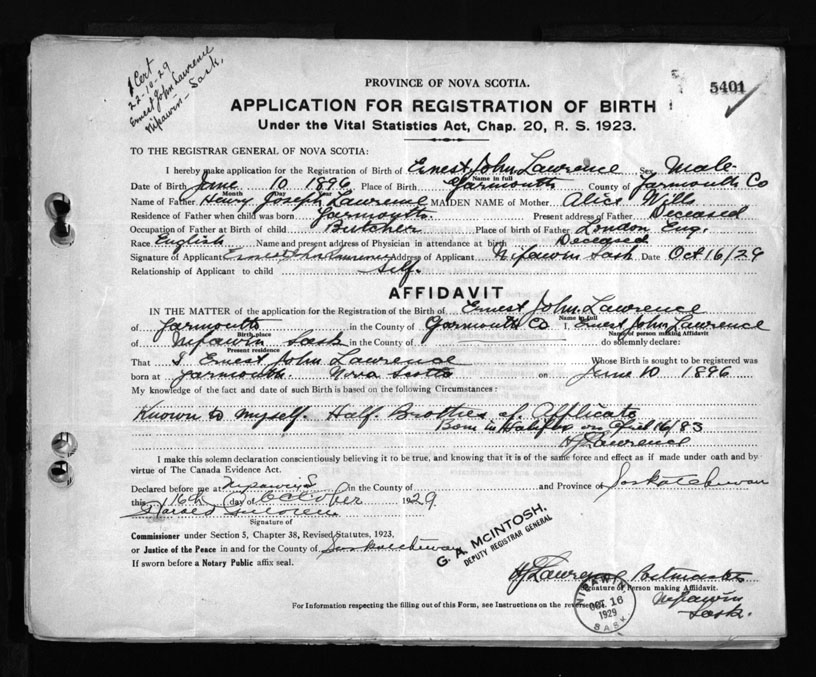 1 Cert
22-10-29
Ernest John Lawrence
Nipawin - Sask.
5401
PROVINCE OF NOVA SCOTIA.
APPLICATION FOR REGISTRATION OF BIRTH
Under the Vital Statistics Act, Chap. 20, R. S. 1923.
TO THE REGISTRAR GENERAL OF NOVA SCOTIA:
I hereby make application for the Registration of Birth of Ernest John Lawrence Sex Male
Name in full
Date of Birth June 10 1896 Place of Birth Yarmouth County of Yarmouth Co
Month Day Year
Name of Father Henry Joseph Lawrence MAIDEN NAME of Mother Alice Wills
Residence of Father when child was born Yarmouth Present address of Father Deceased
Occupation of Father at Birth of child Butcher Place of birth of Father London Eng.
Race English Name and present address of Physician in attendance at birth Deceased
Signature of Applicant Ernest John Lawrence Address of Applicant Nipawin Sask Date Oct 16/29
Relationship of Applicant to child Self.
AFFIDAVIT
IN THE MATTER of the application for the Registration of the Birth of Ernest John Lawrence
Name in full
of Yarmouth in the County of Yarmouth Co I, Ernest John Lawrence
Birth place Name of person making Affidavit
of Nipawin Sask in the County of do solemnly declare:
Present residence
That I Ernest John Lawrence Whose Birth is sought to be registered was
born at Yarmouth. Nova Scotia on June 10 1896
My knowledge of the fact and date of such Birth is based on the following Circumstances:
Known to myself. Half Brother of Applicate
Born in Halifax on April 16/83
HJ Lawrence
I make this solemn declaration conscientiously believing it to be true, and knowing that it is of the same force and effect as if made under oath and by
virtue of The Canada Evidence Act.
Declared before me at Nipawin S in the County of and Province of Saskatchewan
this 16th day of October 1929.
Signature of
Commissioner under Section 5, Chapter 38, Revised Statutes, 1923,
or Justice of the Peace in and for the County of Saskatchewan
If sworn before a Notary Public affix seal.
G. A. McINTOSH,
DEPUTY REGISTRAR GENERAL
HJ Lawrence Postmaster
Signature of Person making Affidavit.
Nipawin
Sask.
For Information respecting the filling out of this Form, see Instructions on the reverse
NIPAWIN
OCT 16
1929
SASK